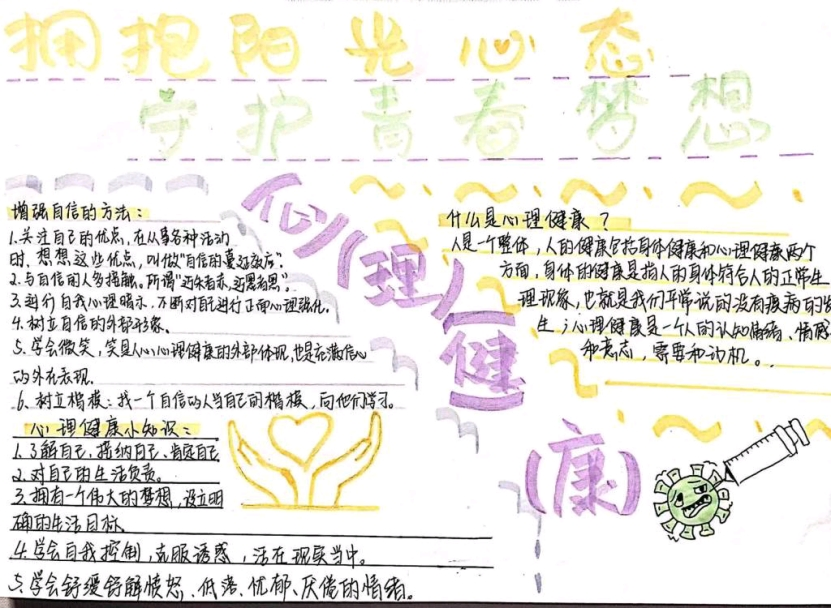 拥抱阳光心态
守护青春梦想
心理健康
增强自信的方法：
1.关注自己的优点，在从事各种活动
时，想想这些优点，叫做"自信的蔓延效应"。
2.与自信的人多接触。所谓"近朱者赤，近墨者黑"。
3.进行自我心理暗示，不断对自己进行正面心理强化。
4.树立自信的外部形象。
5.学会微笑，笑是人心心理健康的外部体现，也是充满信心
的外在表现。
6.树立楷模：找一个自信的人当自己的楷模，向他们学习。
心理健康小知识：
1.了解自己、接纳自己、肯定自己
2.对自己的生活负责。
3.拥有一个伟大的梦想，设立明
确的生活目标
4.学会自我控制，克服诱惑，活在现实当中。
5.学会舒缓舒解愤怒、低落、忧郁、厌倦的情绪。
什么是心理健康？
人是一个整体，人的健康包括身体健康和心理健康两个
方面，身体的健康是指人的身体符合人的正常生
理现象，也就是我们平常说的没有疾病的
生；心理健康是一个人的认知情绪、情感
和意志，需要和动机。